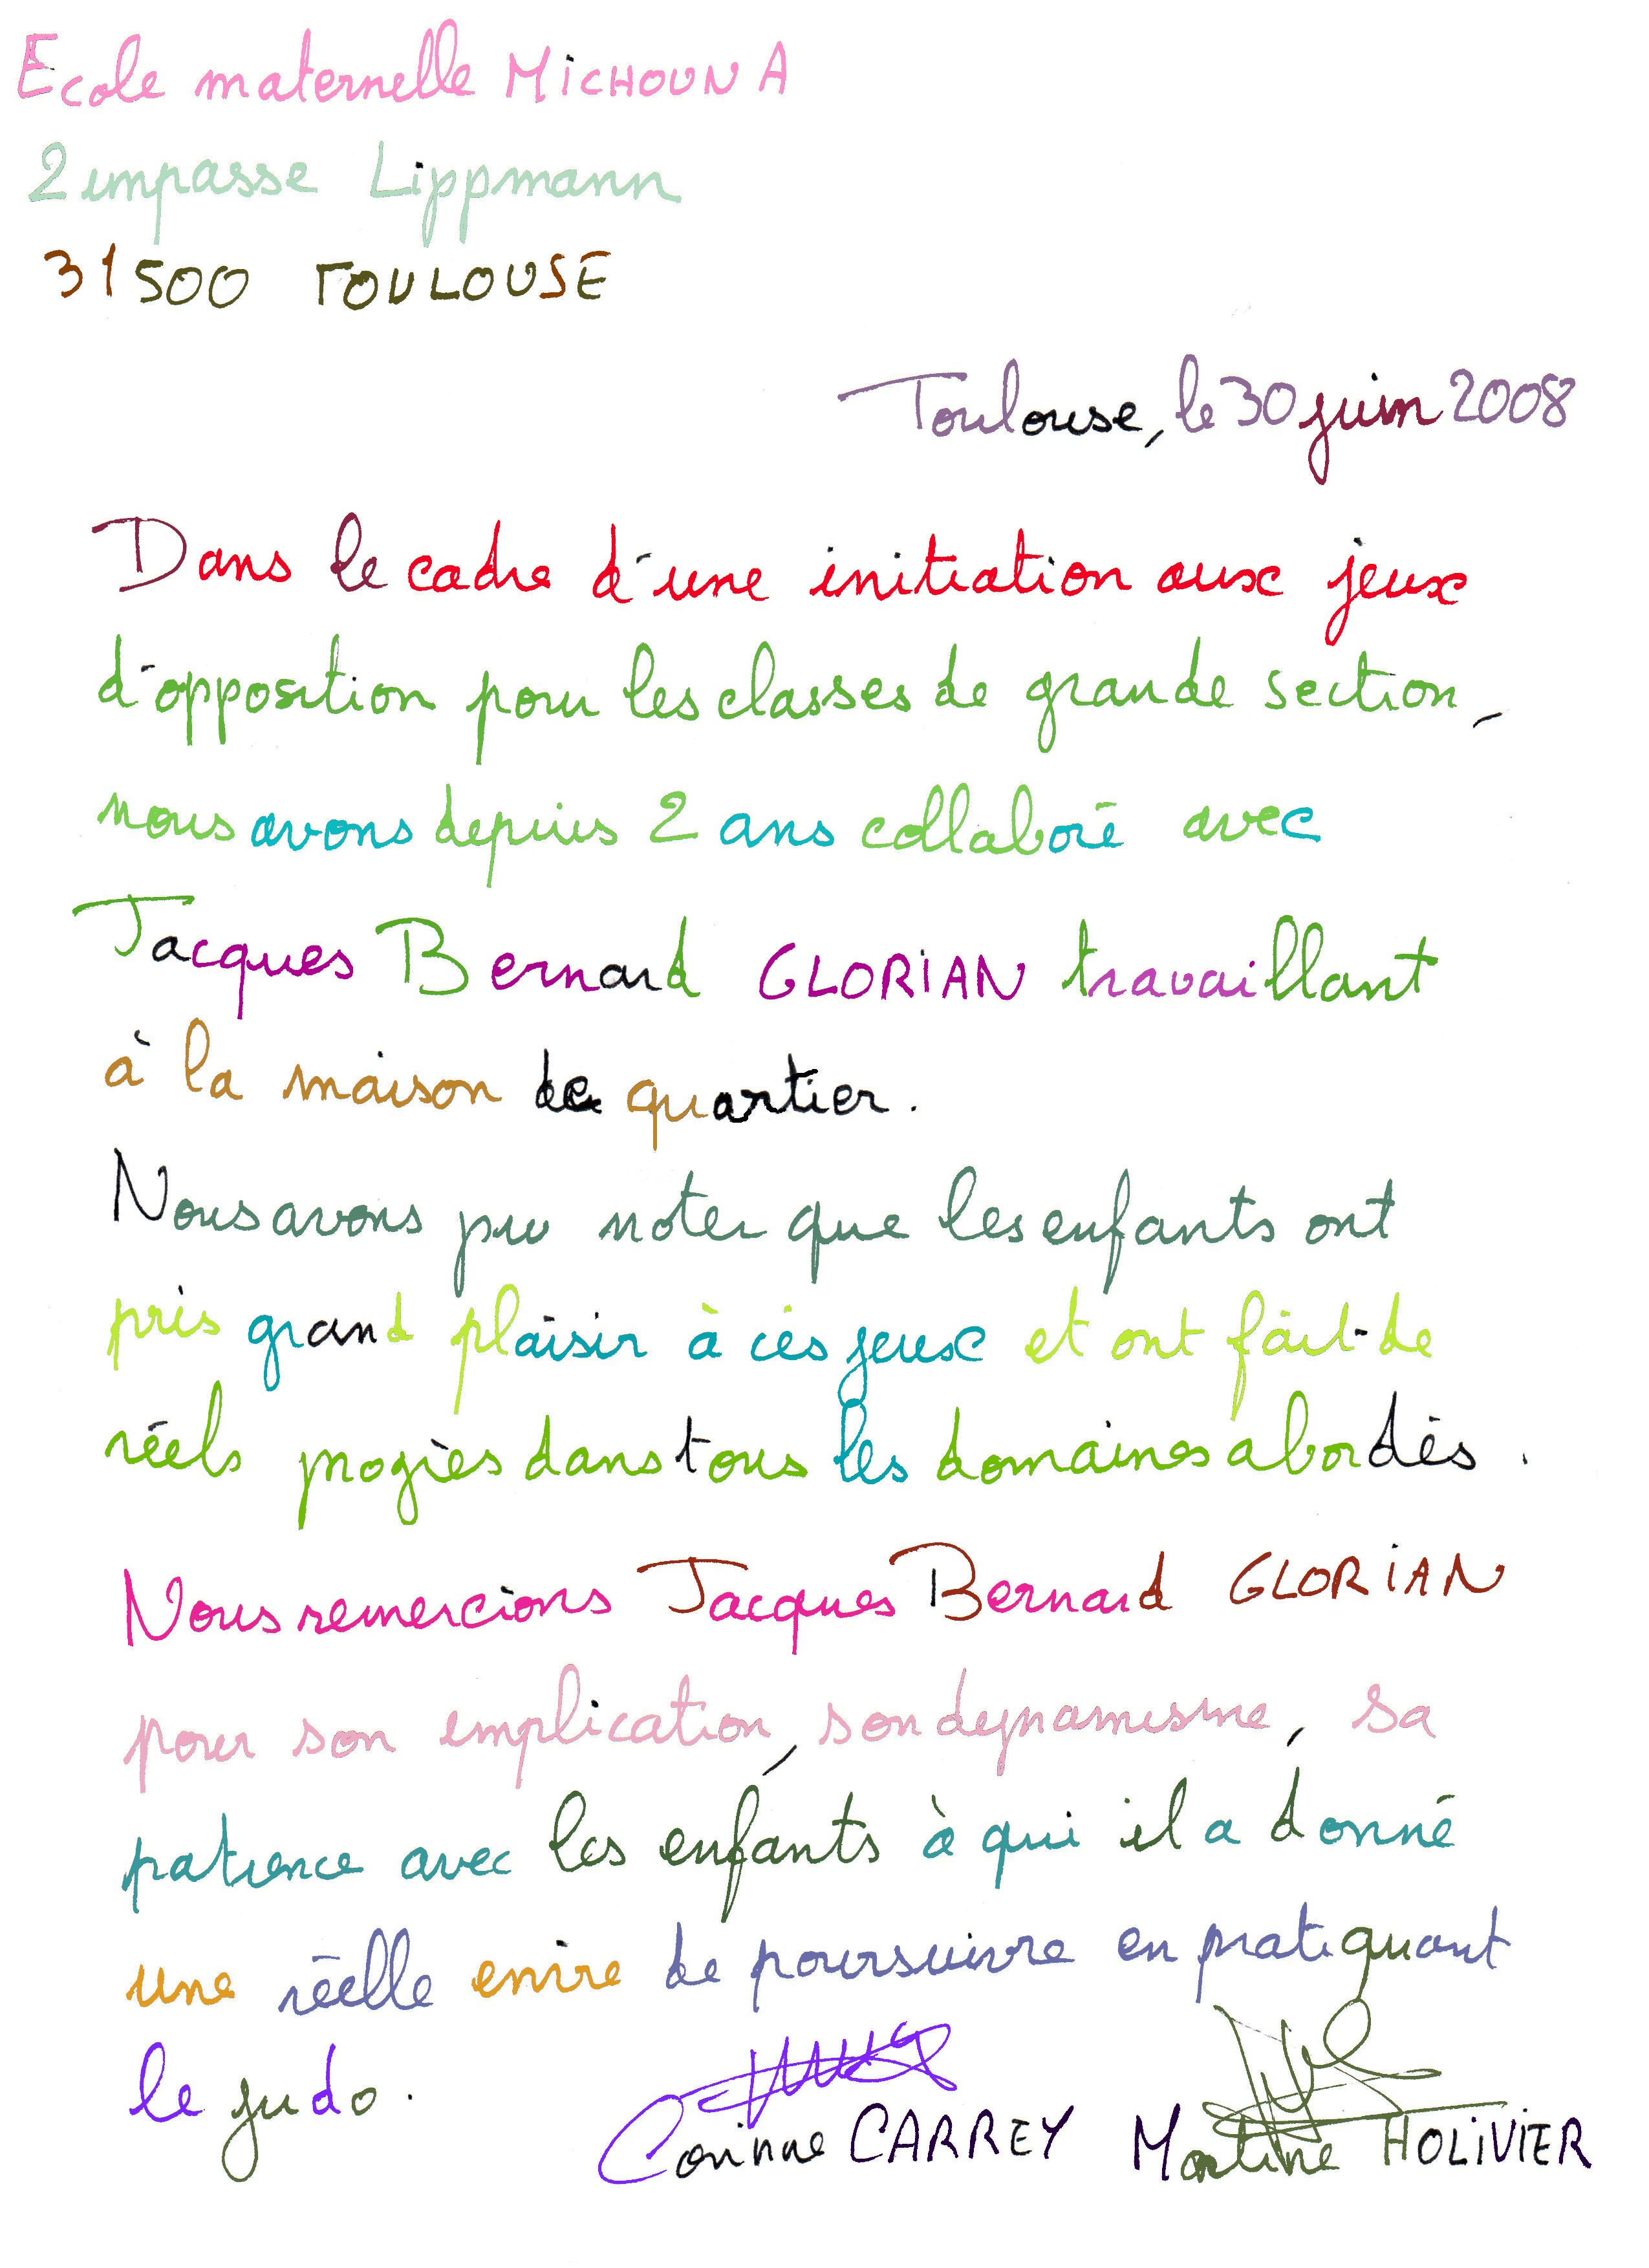 Ecole maternelle MICHOUN A
2 impasse Lippmann
31500 TOULOUSE
Toulouse, le 30 juin 2008
Dans le cadre d'une initiation aux jeux
d'opposition pour les classes de grande section,
nous avons depuis 2 ans collaboré avec
Jacques Bernard GLORIAN travaillant
à la maison de quartier.
Nous avons pu noter que les enfants ont
pris grand plaisir à ces jeux et ont fait de
réels progrès dans tous les domaines abordés.
Nous remercions Jacques Bernard GLORIAN
pour son implication, son dynamisme, sa
patience avec les enfants à qui il a donné
une réelle envie de poursuivre en pratiquant
le judo.
Corinne CARREY Martine HOLIVIER